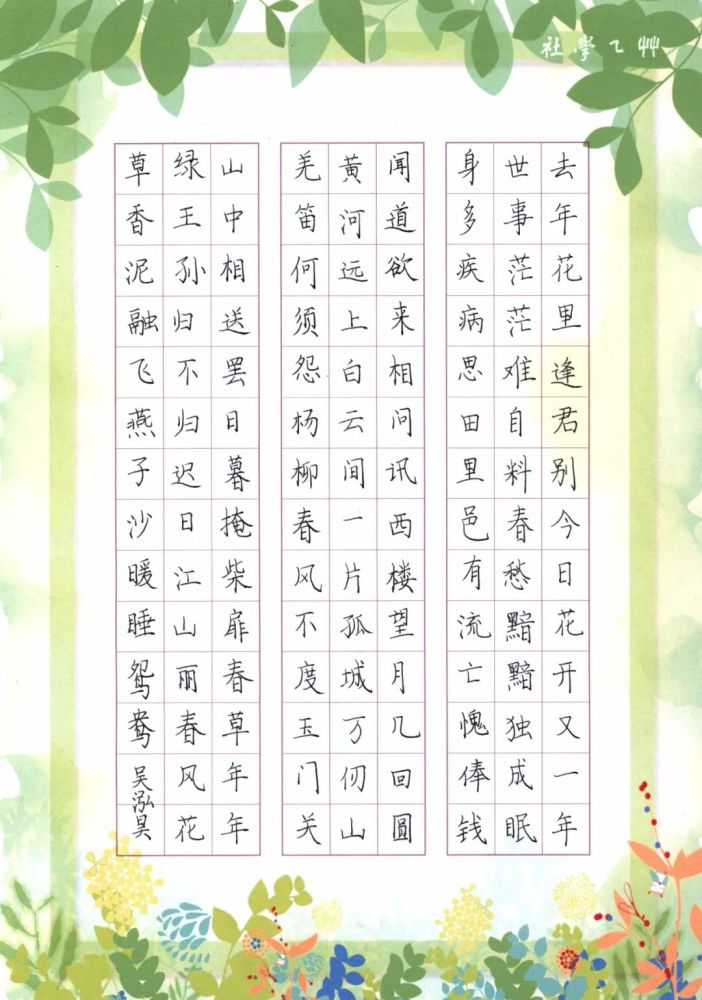 艸乙學社
去年花里逢君别今日花开又一年
世事茫茫难自料春愁黯黯独成眠
身多疾病思田里邑有流亡愧俸钱
闻道欲来相问讯西楼望月几回圆
黄河远上白云间一片孤城万仞山
羌笛何须怨杨柳春风不度玉门关
山中相送罢日暮掩柴扉春草年年
绿王孙归不归迟日江山丽春风花
草香泥融飞燕子沙暖睡鸳鸯
吴泓昊